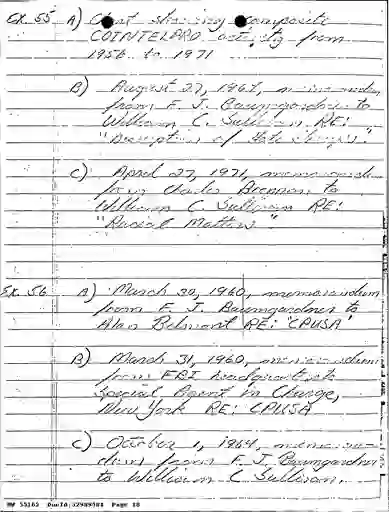 Ex. 55 A) Chart showing composite
COINTELPRO activity from
1956 to 1971
B) August 27, 1964, memorandum
from F. J. Baumgardner to
William C. Sullivan RE:
"Disruption of
C) April 27, 1971, memorandum
from Charles Brennan to
William C. Sullivan RE:
"Racial Matters"
Ex. 56 A) March 30, 1960, memorandum
from F. J. Baumgardner to
Alan Belmont RE: "CPUSA"
B) March 31, 1960, memorandum
from FBI headquarters to
Special Agent in Charge,
New York RE: CPUSA
C) October 1, 1964, memoran-
dum from F. J. Baumgardner
to William C Sullivan.
HW 55163 DocId:32989581 Page 18